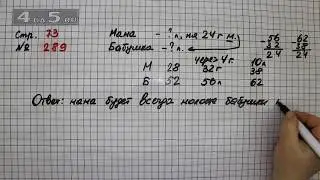 4 до 5.ru
Стр. 73
№ 289
Мама - ? л., на 24 г. м.
Бабушка - ? л.
через 4 г. 10 л
М 28 32 г. 38
Б 52 56 л 62
- 56
32
24
- 62
38
24
Ответ: мама будет всегда моложе бабушки